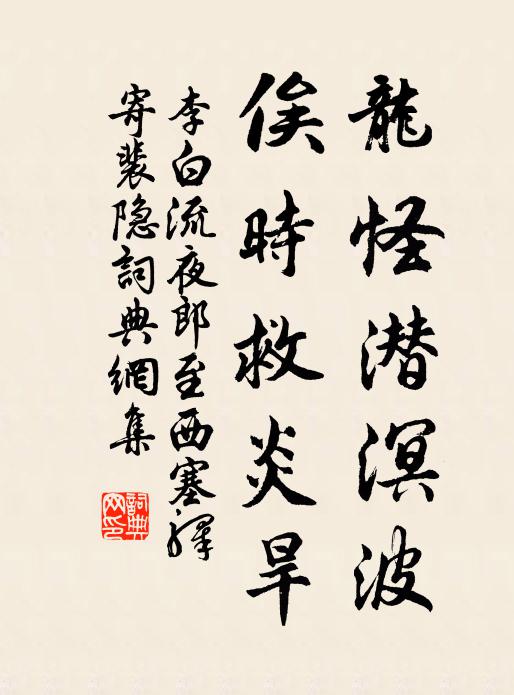 龍怪潜溟波
俟時救炎旱
李白流夜郎至西塞驛
寄裴隐詞典網集
詞典网印